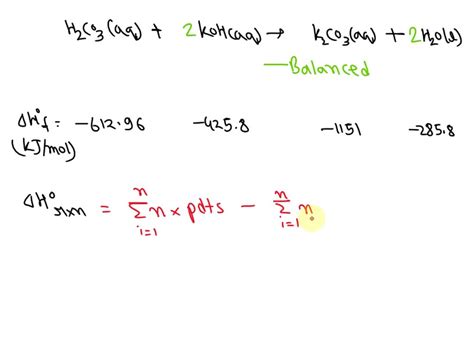 H₂CO₃(aq) + 2KOH(aq) → K₂CO₃(aq) + 2H₂O(l)
— Balanced
ΔH°f = -612.96 -425.8 -1151 -285.8
(kJ/mol)
ΔH°rxn = Σⁿᵢ₌₁ n × pdts - Σⁿᵢ₌₁ n